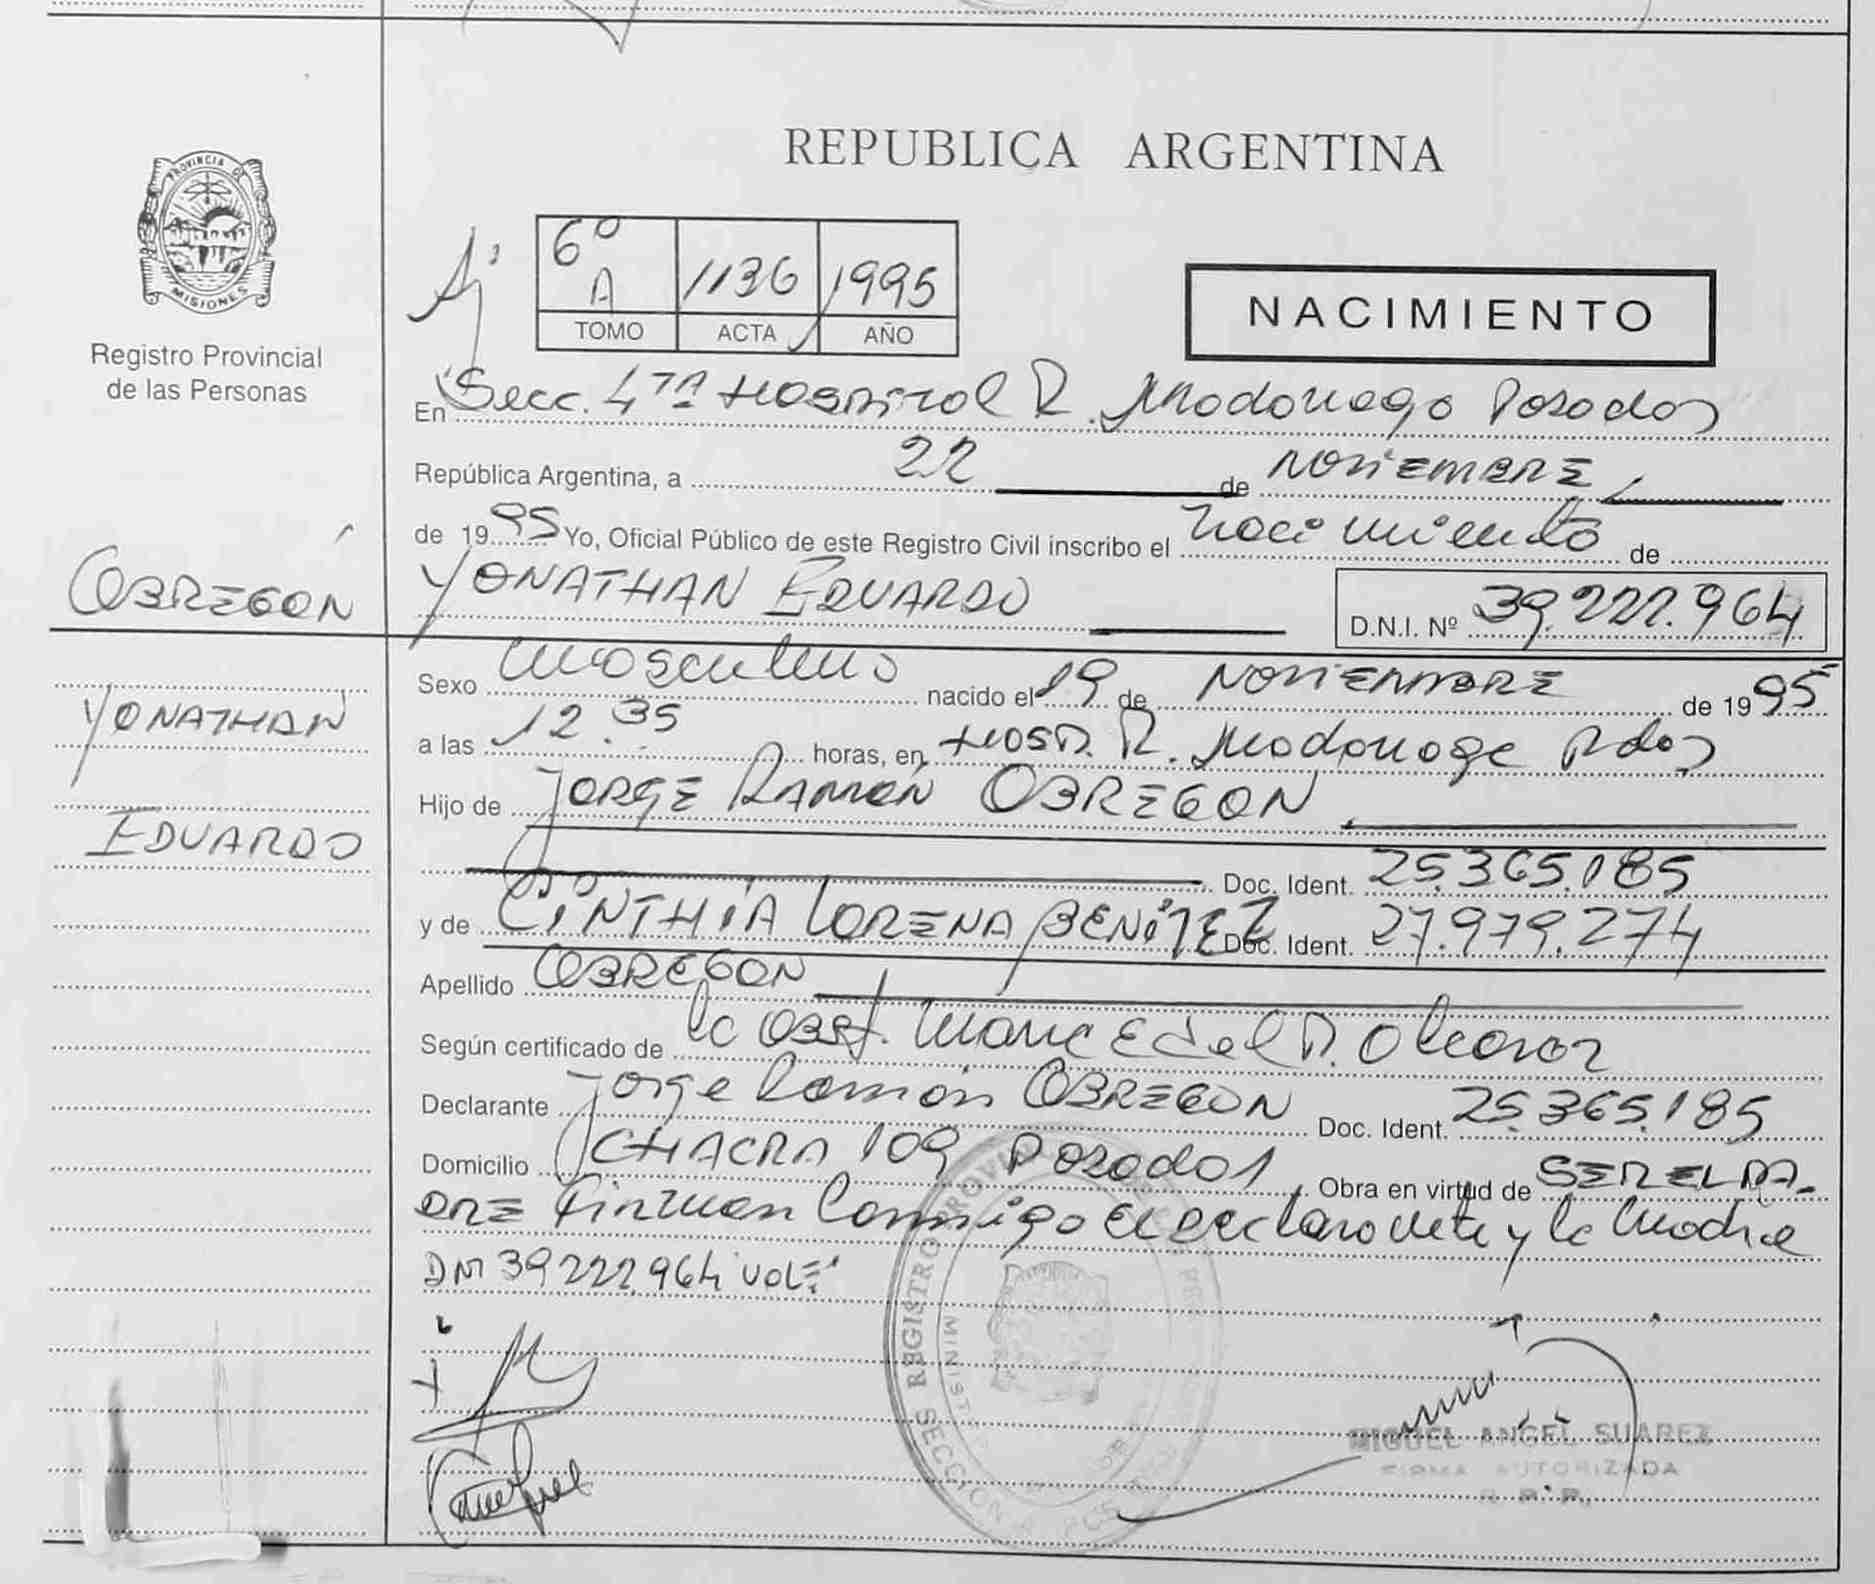 REPUBLICA ARGENTINA
PROVINCIA DE
MISIONES
Registro Provincial
de las Personas
6º A 1136 1995
TOMO ACTA AÑO
NACIMIENTO
En Secc. 4TA Hospital R. Madariaga Posadas
República Argentina, a 22 de NOVIEMBRE
de 1995 Yo, Oficial Público de este Registro Civil inscribo el nacimiento de
OBREGÓN
YONATHAN EDUARDO D.N.I. Nº 39.222.964
Sexo masculino nacido el 19 de NOVIEMBRE de 1995
YONATHAN
a las 12.35 horas, en HOSP. R. Madariaga Pdas
Hijo de JORGE RAMÓN OBREGON
EDUARDO
Doc. Ident. 25.365.185
y de CINTHIA LORENA BENITEZ Doc. Ident. 27.979.274
Apellido OBREGON
Según certificado de la Obst. del
Declarante Jorge Ramón OBREGON Doc. Ident. 25.365.185
Domicilio CHACRA 109 Posadas Obra en virtud de SER EL PA-
DRE Firman Conmigo el Declarante y la Madre
DNI 39222.964 VALE
REGISTRO PROVINCIAL
SECCION
MIGUEL ANGEL SUAREZ
FIRMA AUTORIZADA